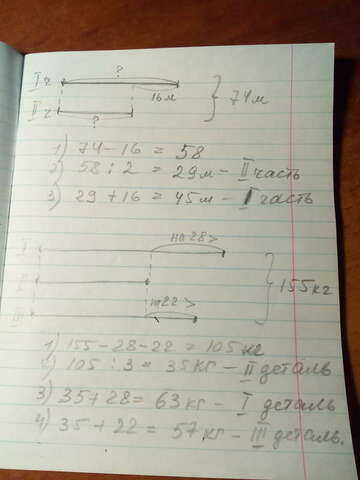 ?
I ч
16 м
II ч
?
74 м
1) 74 - 16 = 58
2) 58 : 2 = 29 м - II часть
3) 29 + 16 = 45 м - I часть
I
на 28 >
II
155 кг
III
на 22 >
1) 155 - 28 - 22 = 105 кг
2) 105 : 3 = 35 кг - II деталь
3) 35 + 28 = 63 кг - I деталь
4) 35 + 22 = 57 кг - III деталь.